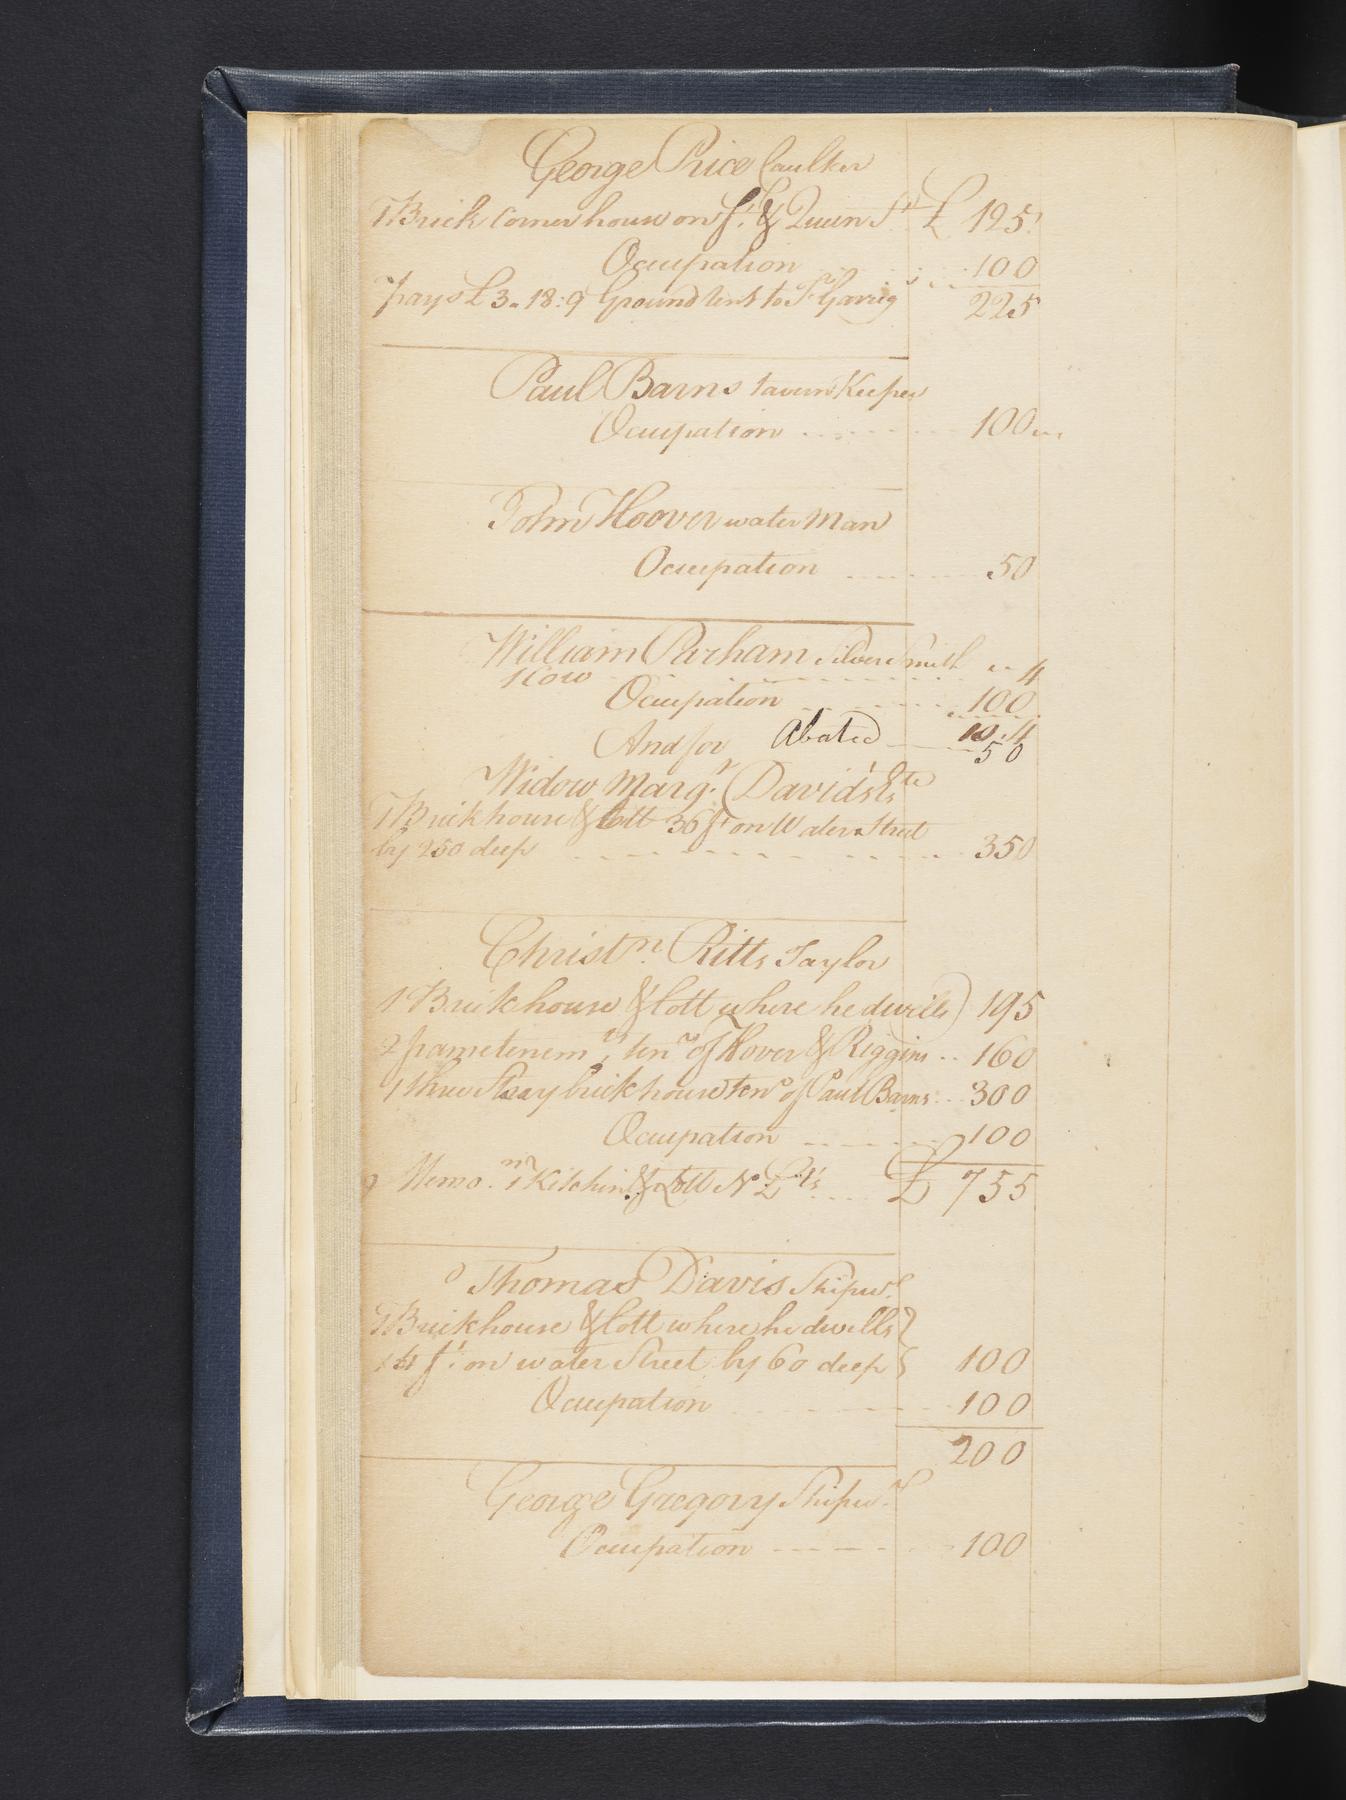 George Price Caulker
1 Brick corner house on ft. & Queen St £ 125
Occupation 100
pays £ 3-18:9 Ground rent to 225
Paul Barns tavern Keeper
Occupation 100
John Hoover water Man
Occupation 50
William Parham Silver Smith
1 Cow 4
Occupation 100
10.4
And for Abated 50
Widow Margt Davids's Este
1 Brick house & lott 36 ft on Water Street
by 250 deep 350
Christn Ritts Taylor
1 Brick house & lott where he dwells 195
2 frame tenemts, tens of Hover & Riggins 160
1 three Story brick house ten of Paul Barns 300
Occupation 100
Memo. Kitchin & Lott N. Lts £ 755
Thomas Davis Shipwt
1 Brick house & lott where he dwells
14 ft on water Street by 60 deep 100
Occupation 100
200
George Gregory Shipwt
Occupation 100